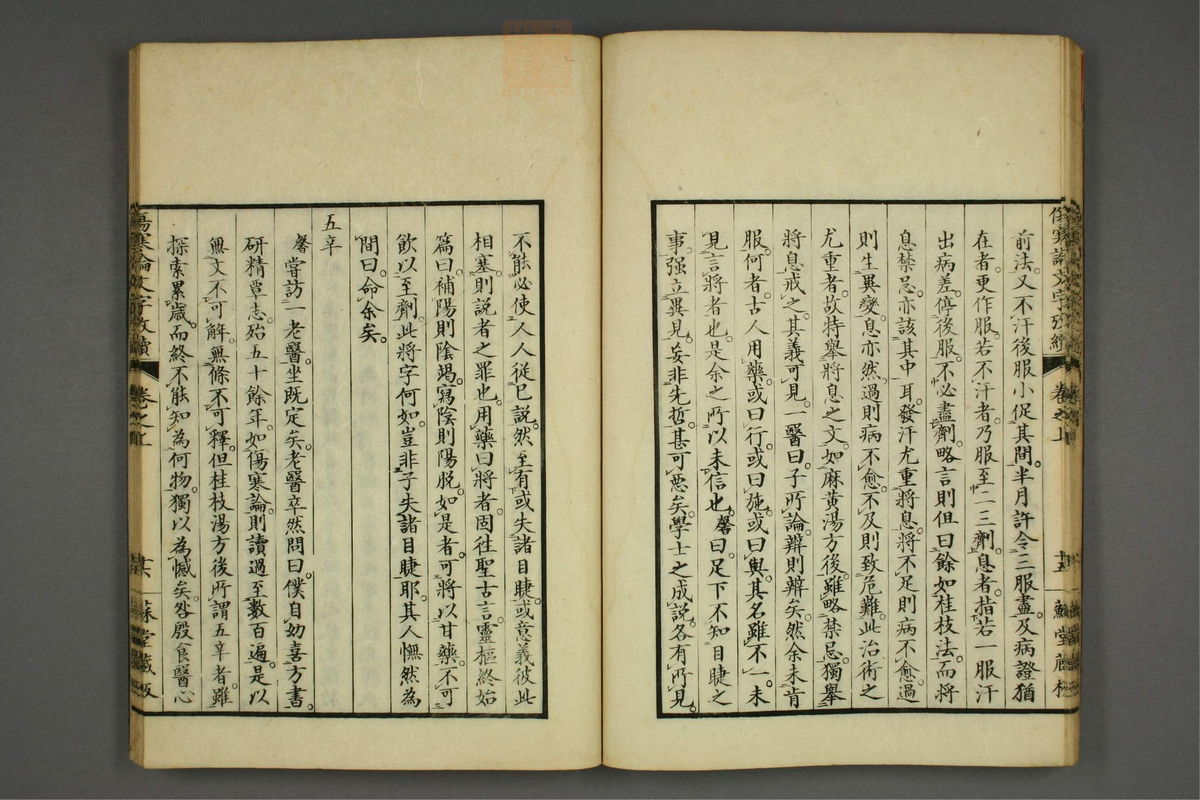 前法。又不汗後服小促其間。半月許令三服盡。及病證猶
在者。更作服。若不汗者。乃服至二三劑。息者。指若一服汗
出病差。停後服。不必盡劑。略言則但曰餘如桂枝法。而將
息禁忌。亦該其中耳。發汗尤重將息。將不足則病不愈。過
則生異變。息亦然。過則病不愈。不及則致危難。此治術之
尤重者。故特舉將息之文。如麻黄湯方後。雖略禁忌。獨舉
將息戒之。其義可見。一醫曰。子所論。辨則辨矣。然余未肯
服。何者。古人用藥。或曰行。或曰施。或曰與。其名雖不一。未
見言將者也。是余之所以未信也。馨曰。足下不知目睫之
事。强立異見。妄非先哲。甚可惡矣。學士之成説。各有所見。
不能必使人人從已説。然至有或失諸目睫。或意義彼此
相塞。則説者之罪也。用藥曰將者。固往聖古言。靈樞終始
篇曰。補陽則陰竭。寫陰則陽脱。如是者。可將以甘藥。不可
飲以至劑。此將字何如。豈非子失諸目睫耶。其人憮然為
間曰。命余矣。
五辛
馨嘗訪一老醫。坐既定矣。老醫卒然問曰。僕自幼喜方書。
研精覃志。殆五十餘年。如傷寒論。則讀過至數百遍。是以
無文不可解。無條不可釋。但桂枝湯方後。所謂五辛者。雖
探索累歳。而終不能知為何物。獨以為憾矣。咎殷食醫心
傷寒論文字攷續
卷之上